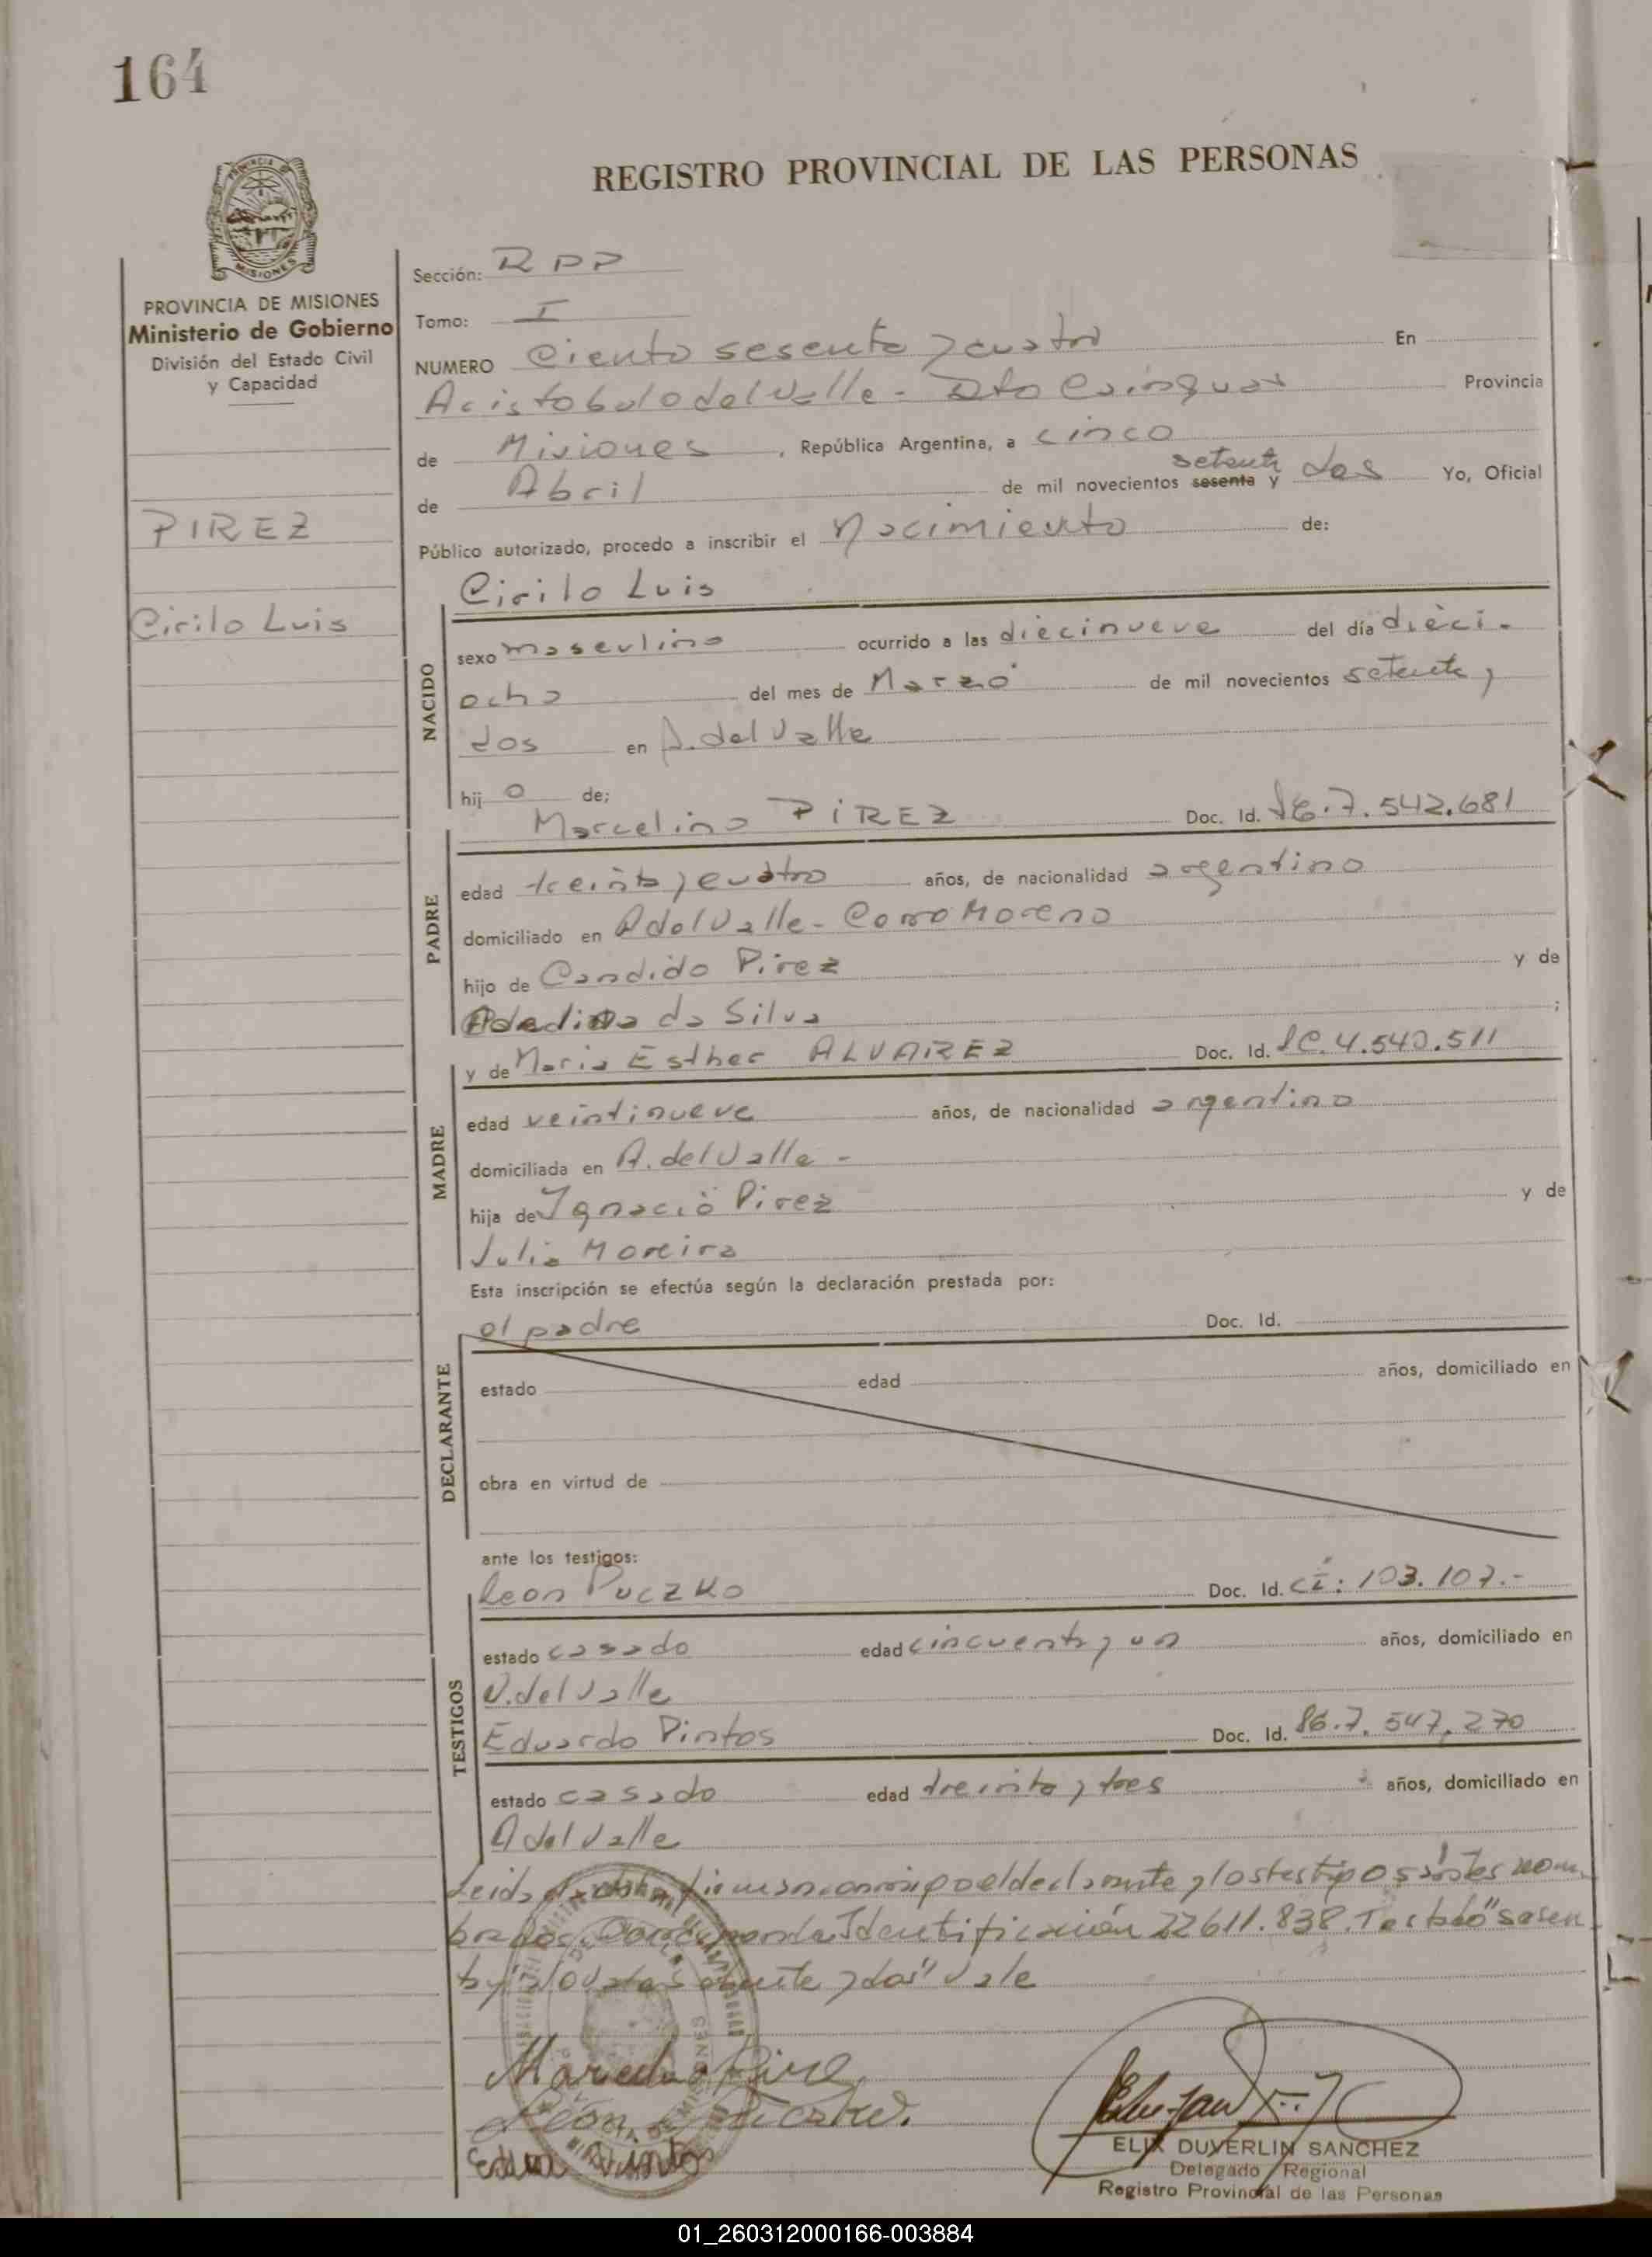 164
REGISTRO PROVINCIAL DE LAS PERSONAS
PROVINCIA DE MISIONES
Ministerio de Gobierno
División del Estado Civil
y Capacidad
PIREZ
Cirilo Luis
Sección: RPP
Tomo: I
NUMERO Ciento sesenta y cuatro En
Aristobulo del Valle - Dto Cainguas Provincia
de Misiones, República Argentina, a cinco
de Abril de mil novecientos sesenta setenta y dos Yo, Oficial
Público autorizado, procedo a inscribir el Nacimiento de:
Cirilo Luis
NACIDO
sexo masculino ocurrido a las diecinueve del día dieci-
ocho del mes de Marzo de mil novecientos setenta y
dos en A. del Valle
hijo de;
Marcelino PIREZ Doc. Id. 7.542.681
PADRE
edad treinta y cuatro años, de nacionalidad argentino
domiciliado en A del Valle - Cerro Moreno
hijo de Candido Pirez y de
da Silva ;
y de Maria Esther ALVAREZ Doc. Id. LC. 4.540.511
MADRE
edad veintinueve años, de nacionalidad argentina
domiciliada en A. del Valle -
hija de Ignacio Pirez y de
Julia Moreira
Esta inscripción se efectúa según la declaración prestada por:
el padre Doc. Id.
DECLARANTE
estado edad años, domiciliado en
obra en virtud de
ante los testigos:
Leon Puczko Doc. Id. CI: 103.107.-
TESTIGOS
estado casado edad cincuenta y un años, domiciliado en
A. del Valle
Eduardo Pintos Doc. Id. 7.547.270
estado casado edad treinta y tres años, domiciliado en
A del Valle
Leida firman conmigo el declarante y los testigos antes nom-
brados. Identificación 22611.838. Testado "sesen
ta y" y dos" Vale
Marcelino Pirez
León
Pintos
ELIX DUVERLIN SANCHEZ
Delegado Regional
Registro Provincial de las Personas
01_260312000166-003884